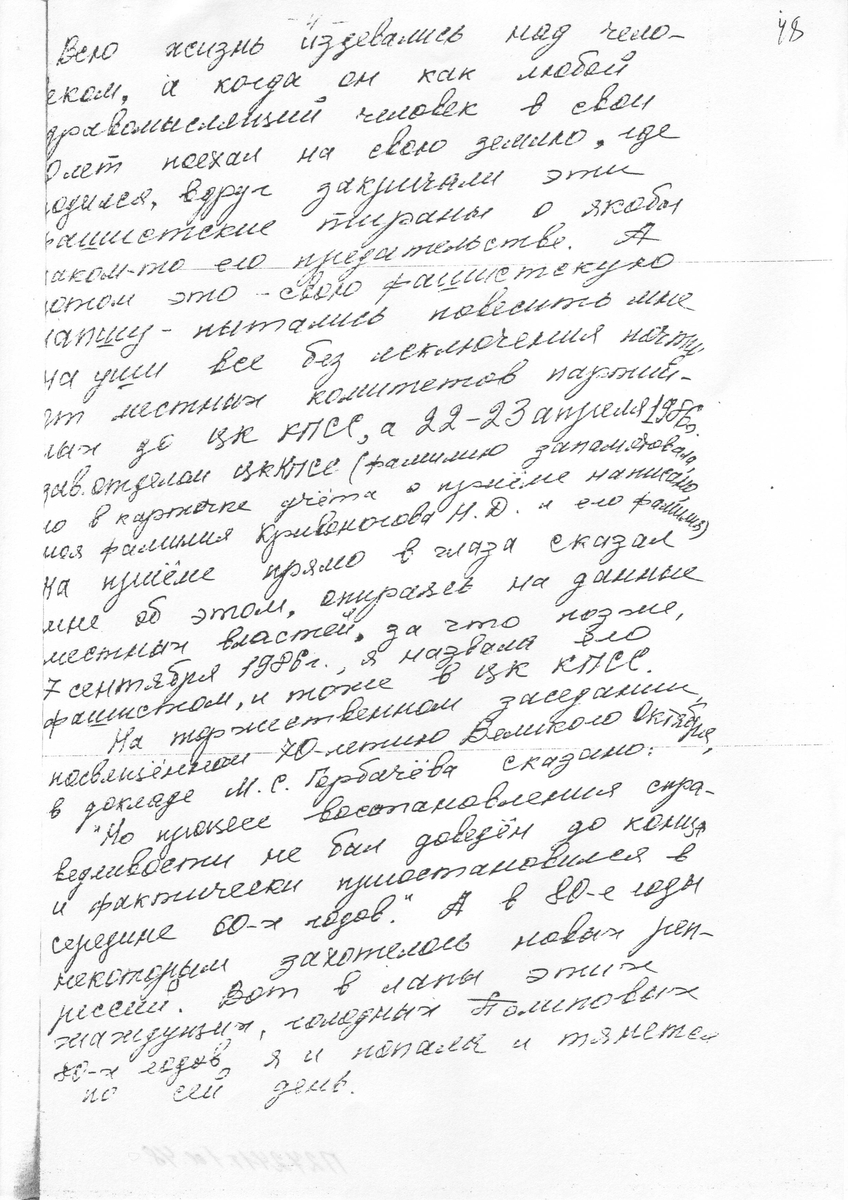 48
Всю жизнь издевались над чело-
еком, а когда он как любой
дравомыслящий человек в свои
0 лет поехал на свою землю, где
одился, вдруг закричали эти
ашистские тираны о якобы
аком-то его предательстве. А
отом это - свою фашистскую
апшу - пытались повесить мне
на уши все без исключения почти,
от местных комитетов партий-
ных до ЦК КПСС, а 22-23 апреля 1986г.
зав. отделом ЦК КПСС (фамилию запамятовала,
но в карточке учёта о приёме написано
моя фамилия Кривоногова Н.Д. и его фамилия)
на приёме прямо в глаза сказал
мне об этом, опираясь на данные
местных властей, за что позже,
7 сентября 1986г., я назвала его
фашистом, и тоже в ЦК КПСС.
На торжественном заседании,
посвящённом 70-летию Великого Октября,
в докладе М.С. Горбачёва сказано:
"Но процесс восстановления спра-
ведливости не был доведён до конца
и фактически приостановился в
середине 60-х годов." А в 80-е годы
некоторым захотелось новых реп-
рессий. Вот в лапы этих
жаждущих, голодных
80-х годов, я и попала и тянется
по сей день.